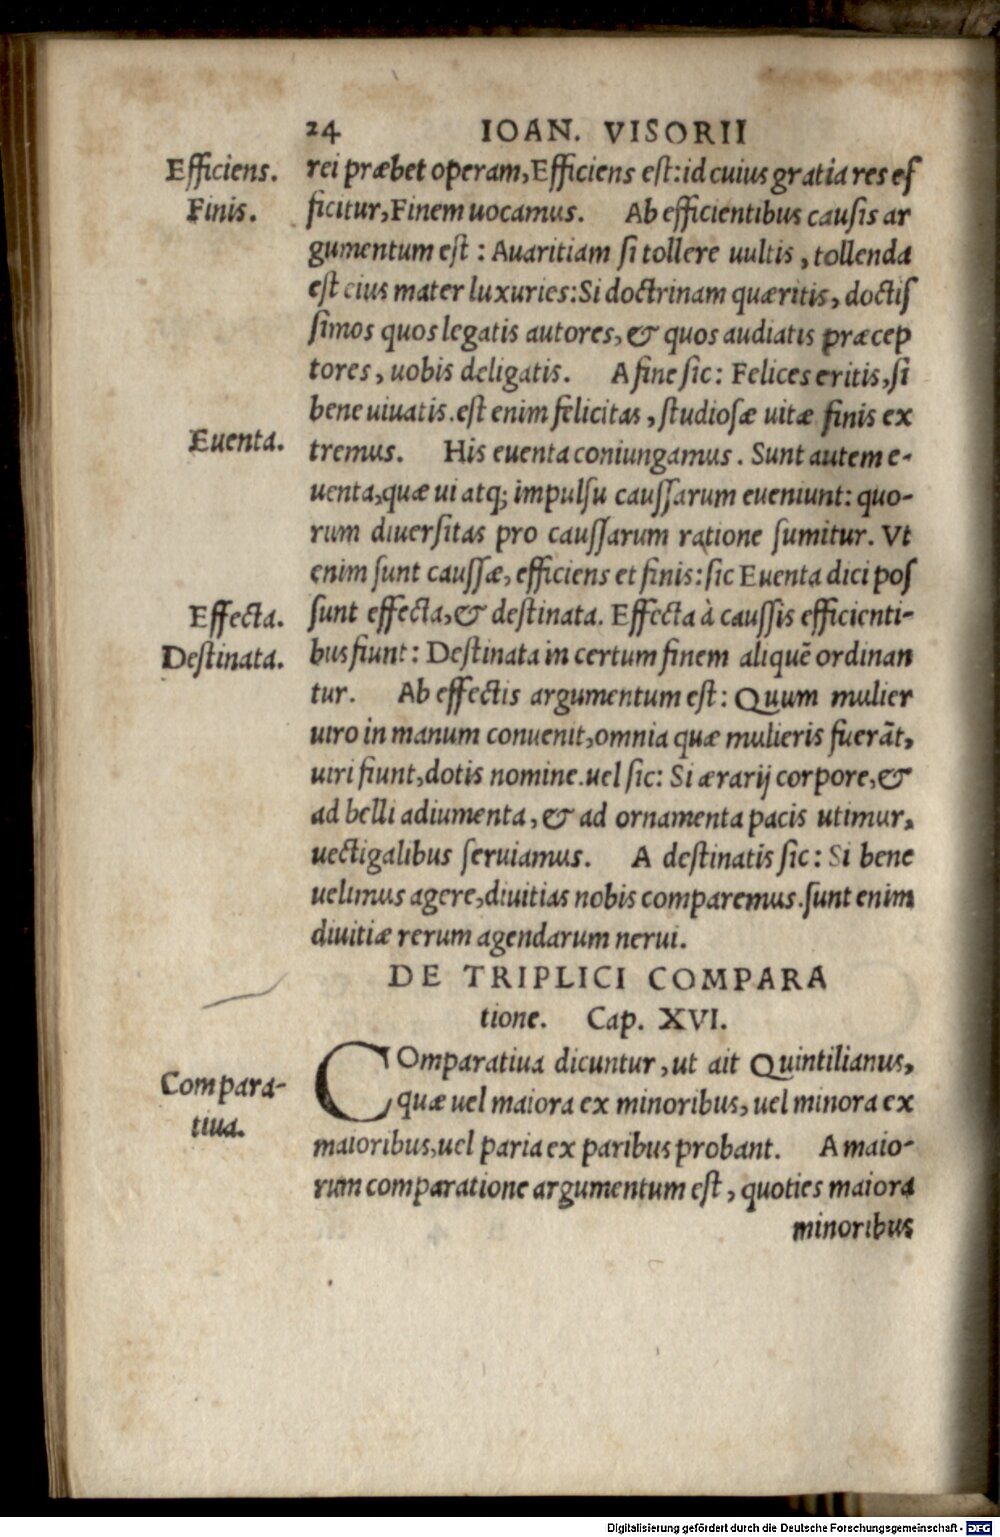 24 IOAN. VISORII
Efficiens.
Finis.
rei præbet operam, Efficiens eſt: id cuius gratia res ef
ficitur, Finem uocamus. Ab efficientibus cauſis ar
gumentum eſt : Auaritiam ſi tollere uultis, tollenda
eſt eius mater luxuries: Si doctrinam quæritis, doctiſ
ſimos quos legatis autores, & quos audiatis præcep
tores, uobis deligatis. A fine ſic: Felices eritis, ſi
bene uiuatis. eſt enim felicitas, ſtudioſæ uitæ finis ex
Euenta.
tremus. His euenta coniungamus. Sunt autem e-
uenta, quæ ui atq; impulſu cauſſarum eueniunt: quo-
rum diuerſitas pro cauſſarum ratione ſumitur. Vt
enim ſunt cauſſæ, efficiens et finis: ſic Euenta dici poſ
Effecta.
ſunt effecta, & deſtinata. Effecta à cauſſis efficienti-
Deſtinata.
bus fiunt: Deſtinata in certum finem aliquē ordinan
tur. Ab effectis argumentum eſt: Quum mulier
uiro in manum conuenit, omnia quæ mulieris fuerāt,
uiri fiunt, dotis nomine. uel ſic: Si ærarij corpore, &
ad belli adiumenta, & ad ornamenta pacis utimur,
uectigalibus ſeruiamus. A deſtinatis ſic: Si bene
uelimus agere, diuitias nobis comparemus. ſunt enim
diuitiæ rerum agendarum nerui.
DE TRIPLICI COMPARA
tione. Cap. XVI.
Compara-
tiua.
COmparatiua dicuntur, ut ait Quintilianus,
quæ uel maiora ex minoribus, uel minora ex
maioribus, uel paria ex paribus probant. A maio-
rum comparatione argumentum eſt, quoties maiora
minoribus
Digitalisierung gefördert durch die Deutsche Forschungsgemeinschaft - DFG